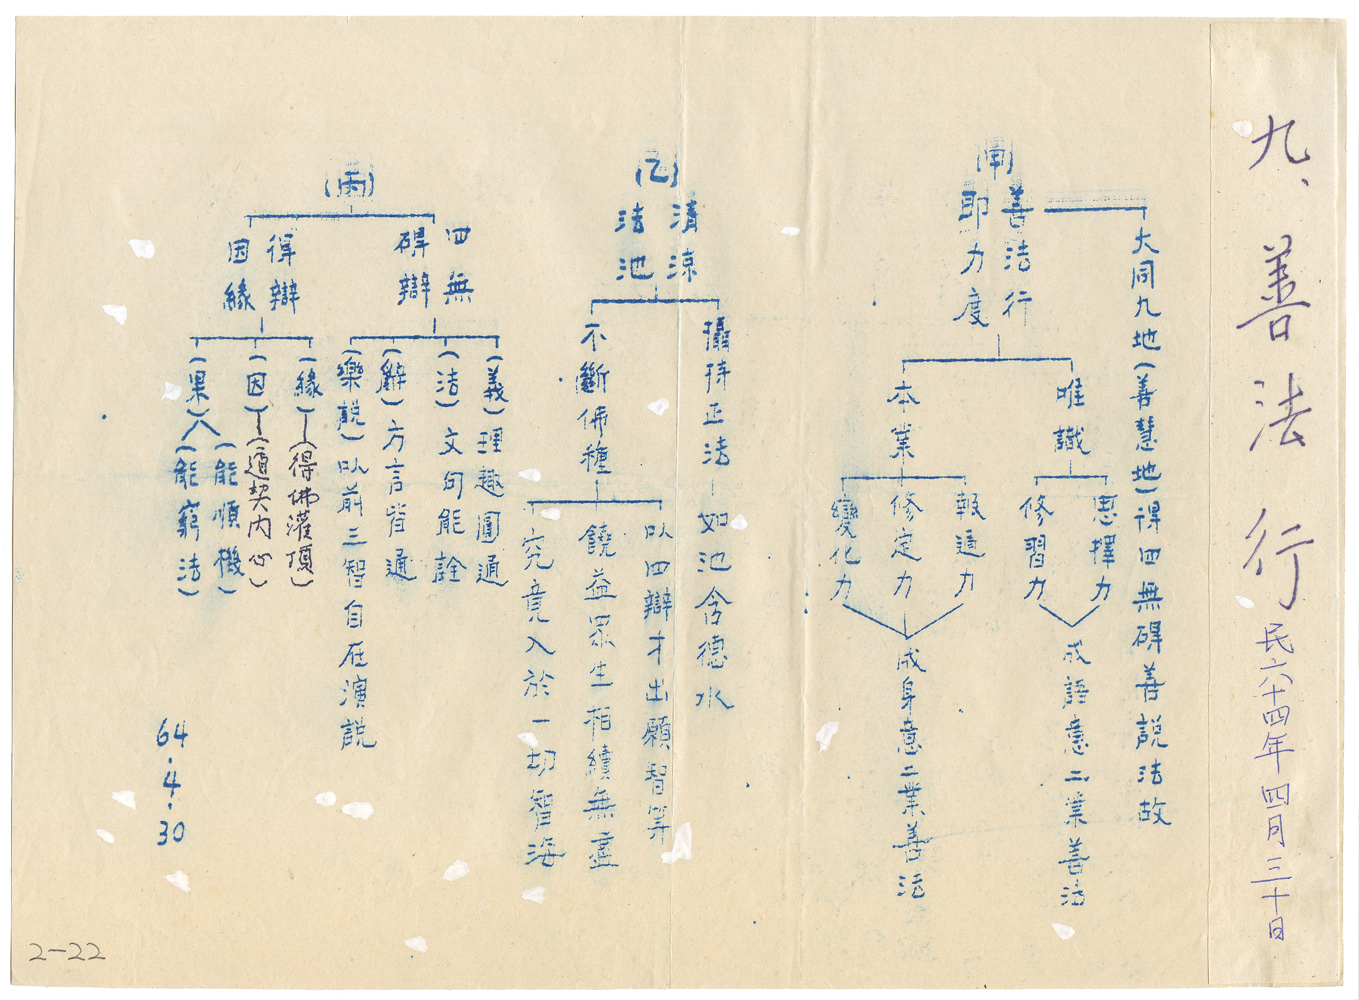 九、善法行 民六十四年四月三十日
(甲)
善法行
即力度
大同九地(善慧地)得四無碍善說法故
唯識
思擇力
修習力
成語意二業善法
本業
報通力
修定力
變化力
成身意二業善法
(乙)
清涼
法池
攝持正法—如池含德水
不斷佛種
以四辯才出願智等
饒益眾生相續無盡
究竟入於一切智海
(丙)
四無
碍辯
(義)理趣圓通
(法)文句能詮
(辭)方言皆通
(樂說)以前三智自在演說
得辯
因緣
(緣)—(得佛灌頂)
(因)—(通契內心)
(果)
(能順機)
(能窮法)
64.4.30
2-22